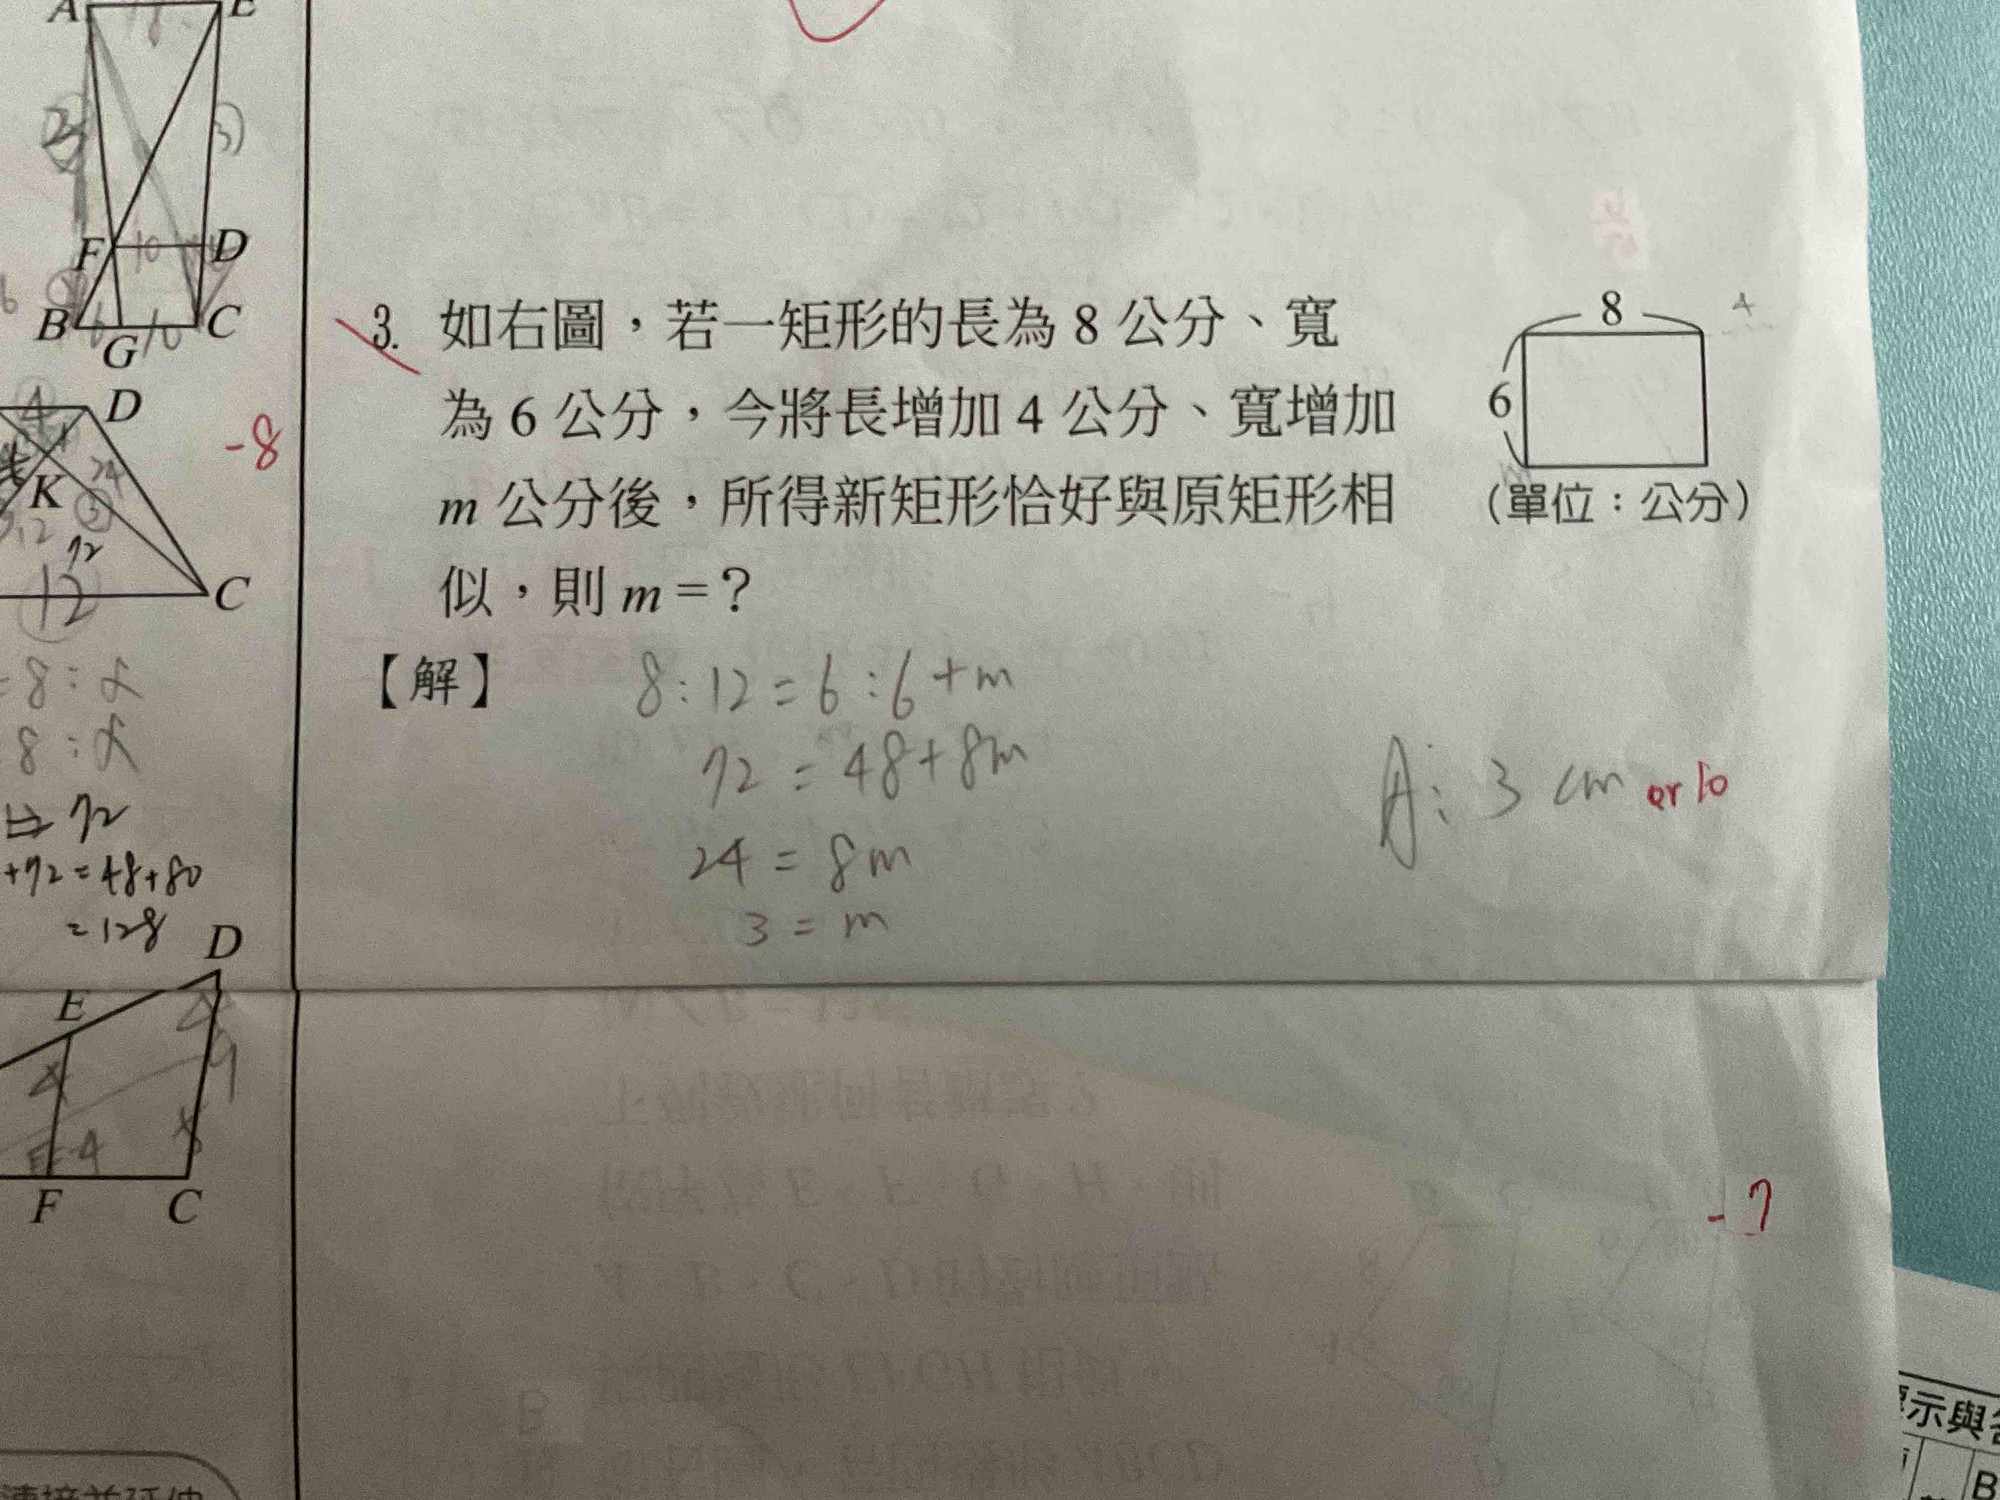 A
E
2
3
F
10
D
B
G
10
C
D
4
24
K
3
12
72
12
C
-8
= 8 : x
8 : x
⇒ 72
+72 = 48 + 80
= 128
D
E
4
4
9
5
4
F
C
3. 如右圖，若一矩形的長為 8 公分、寬
為 6 公分，今將長增加 4 公分、寬增加
m 公分後，所得新矩形恰好與原矩形相
似，則 m = ?
8
4
6
(單位：公分)
【解】 8 : 12 = 6 : 6 + m
72 = 48 + 8m
24 = 8m
3 = m
A: 3 cm or 10
-7
示與
B